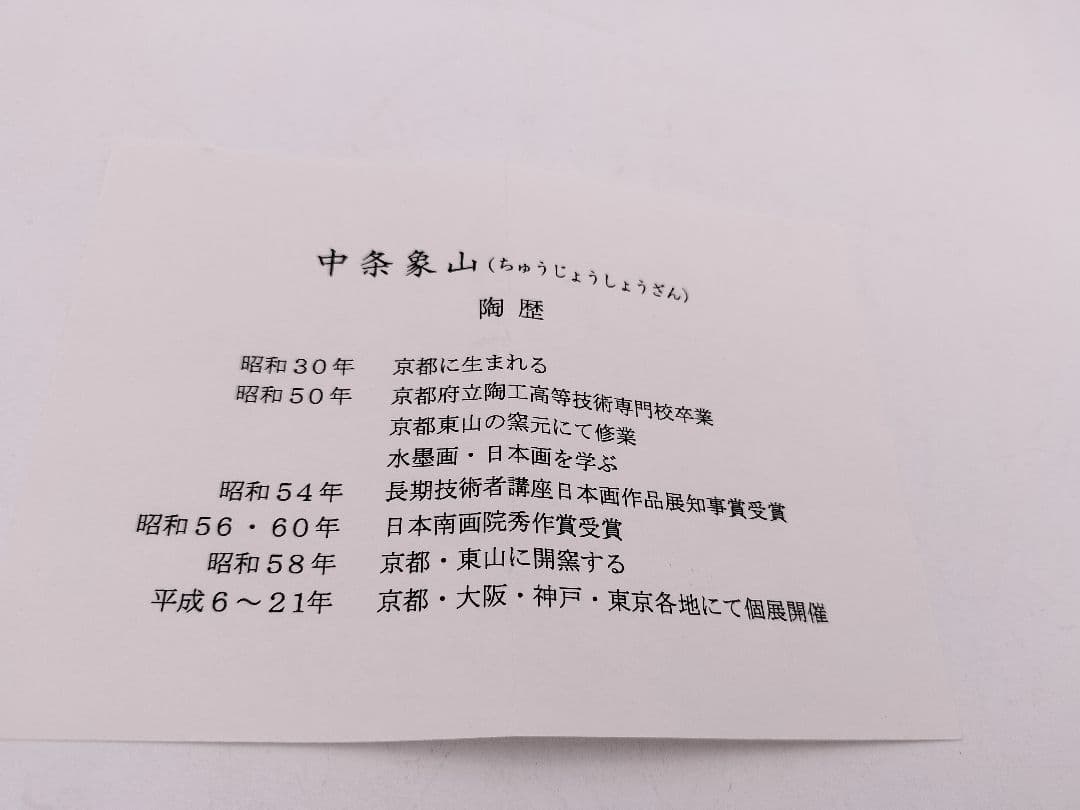 中条象山(ちゅうじょうしょうざん)
陶歴
昭和30年 京都に生まれる
昭和50年 京都府立陶工高等技術専門校卒業
京都東山の窯元にて修業
水墨画・日本画を学ぶ
昭和54年 長期技術者講座日本画作品展知事賞受賞
昭和56・60年 日本南画院秀作賞受賞
昭和58年 京都・東山に開窯する
平成6~21年 京都・大阪・神戸・東京各地にて個展開催